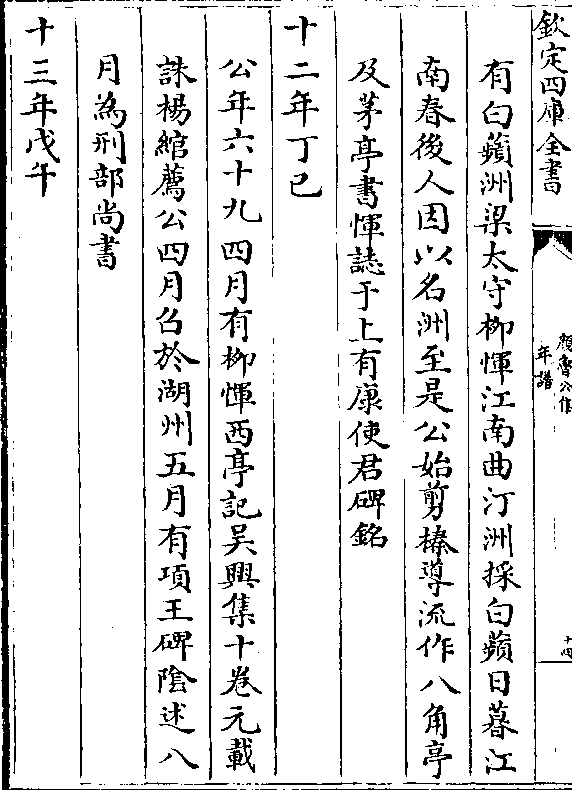 欽定四庫全書
顔魯公作
年譜
十四
有白蘋洲梁太守柳惲江南曲汀洲採白蘋日暮江
南春後人因以名洲至是公始剪榛導流作八角亭
及茅亭書惲詩于上有康使君碑銘
十二年丁巳
公年六十九四月有柳惲西亭記吳興集十卷元載
誅楊綰薦公四月召於湖州五月有項王碑陰述八
月為刑部尚書
十三年戊午